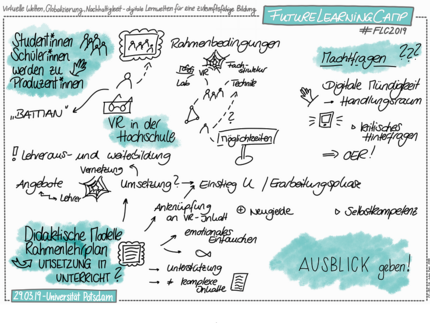 Virtuelle Welten, Globalisierung, Nachhaltigkeit - digitale Lernwelten für eine zukunftsfähige Bildung
FUTURE LEARNING CAMP
#FLC2019
Student*innen
Schüler*innen
werden zu
Produzent*innen
"BATTIAN"
VR in der
Hochschule
Rahmenbedingungen
Lab
VR
Fach-
struktur
Technik
?
möglichkeiten
Machtfragen ???
Digitale Mündigkeit
→ Handlungsraum
▹ kritisches
Hinterfragen
⇒ OER!
! Lehreraus- und weiterbildung
Vernetzung
Angebote
Lehrer
Umsetzung? → Einstieg U / Erarbeitungsphase
Anknüpfung
an VR-Inhalt
⊕ Neugierde
▹ Selbstkompetenz
→ emotionales
Eintauchen
→ Unterstützung
→ + komplexe
Inhalte
Didaktische Modelle
Rahmenlehrplan
UMSETZUNG IM
UNTERRICHT?
AUSBLICK geben!
29.03.19 - Universität Potsdam